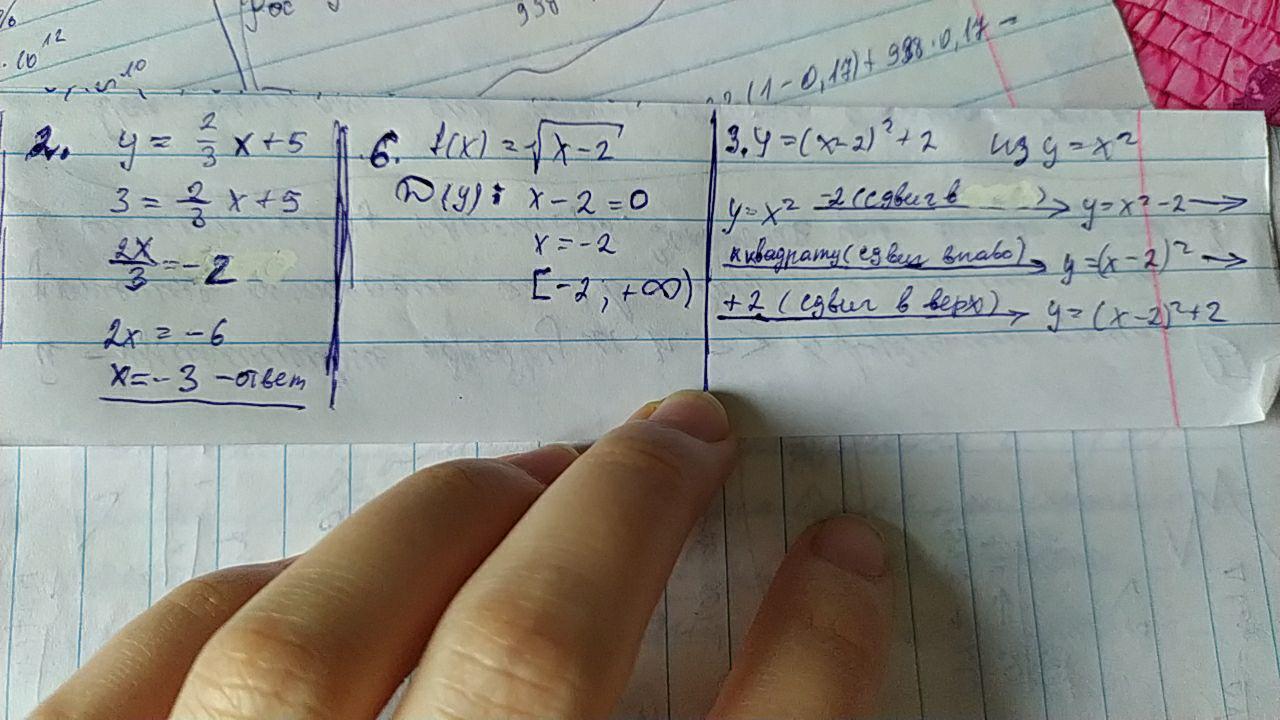 · 10¹²
998
(1 - 0,17) + 998 · 0,17 =
2. y = 2/3 x + 5
3 = 2/3 x + 5
2x/3 = -2
2x = -6
x = -3 - ответ
6. f(x) = √(x-2)
D(y): x - 2 = 0
x = -2
[-2; +∞)
3. y = (x-2)² + 2 из y = x²
y = x² -2 (сдвиг в ) → y = x² - 2 →
к квадрату (сдвиг вправо) → y = (x - 2)² →
+2 (сдвиг в верх) → y = (x-2)²+2